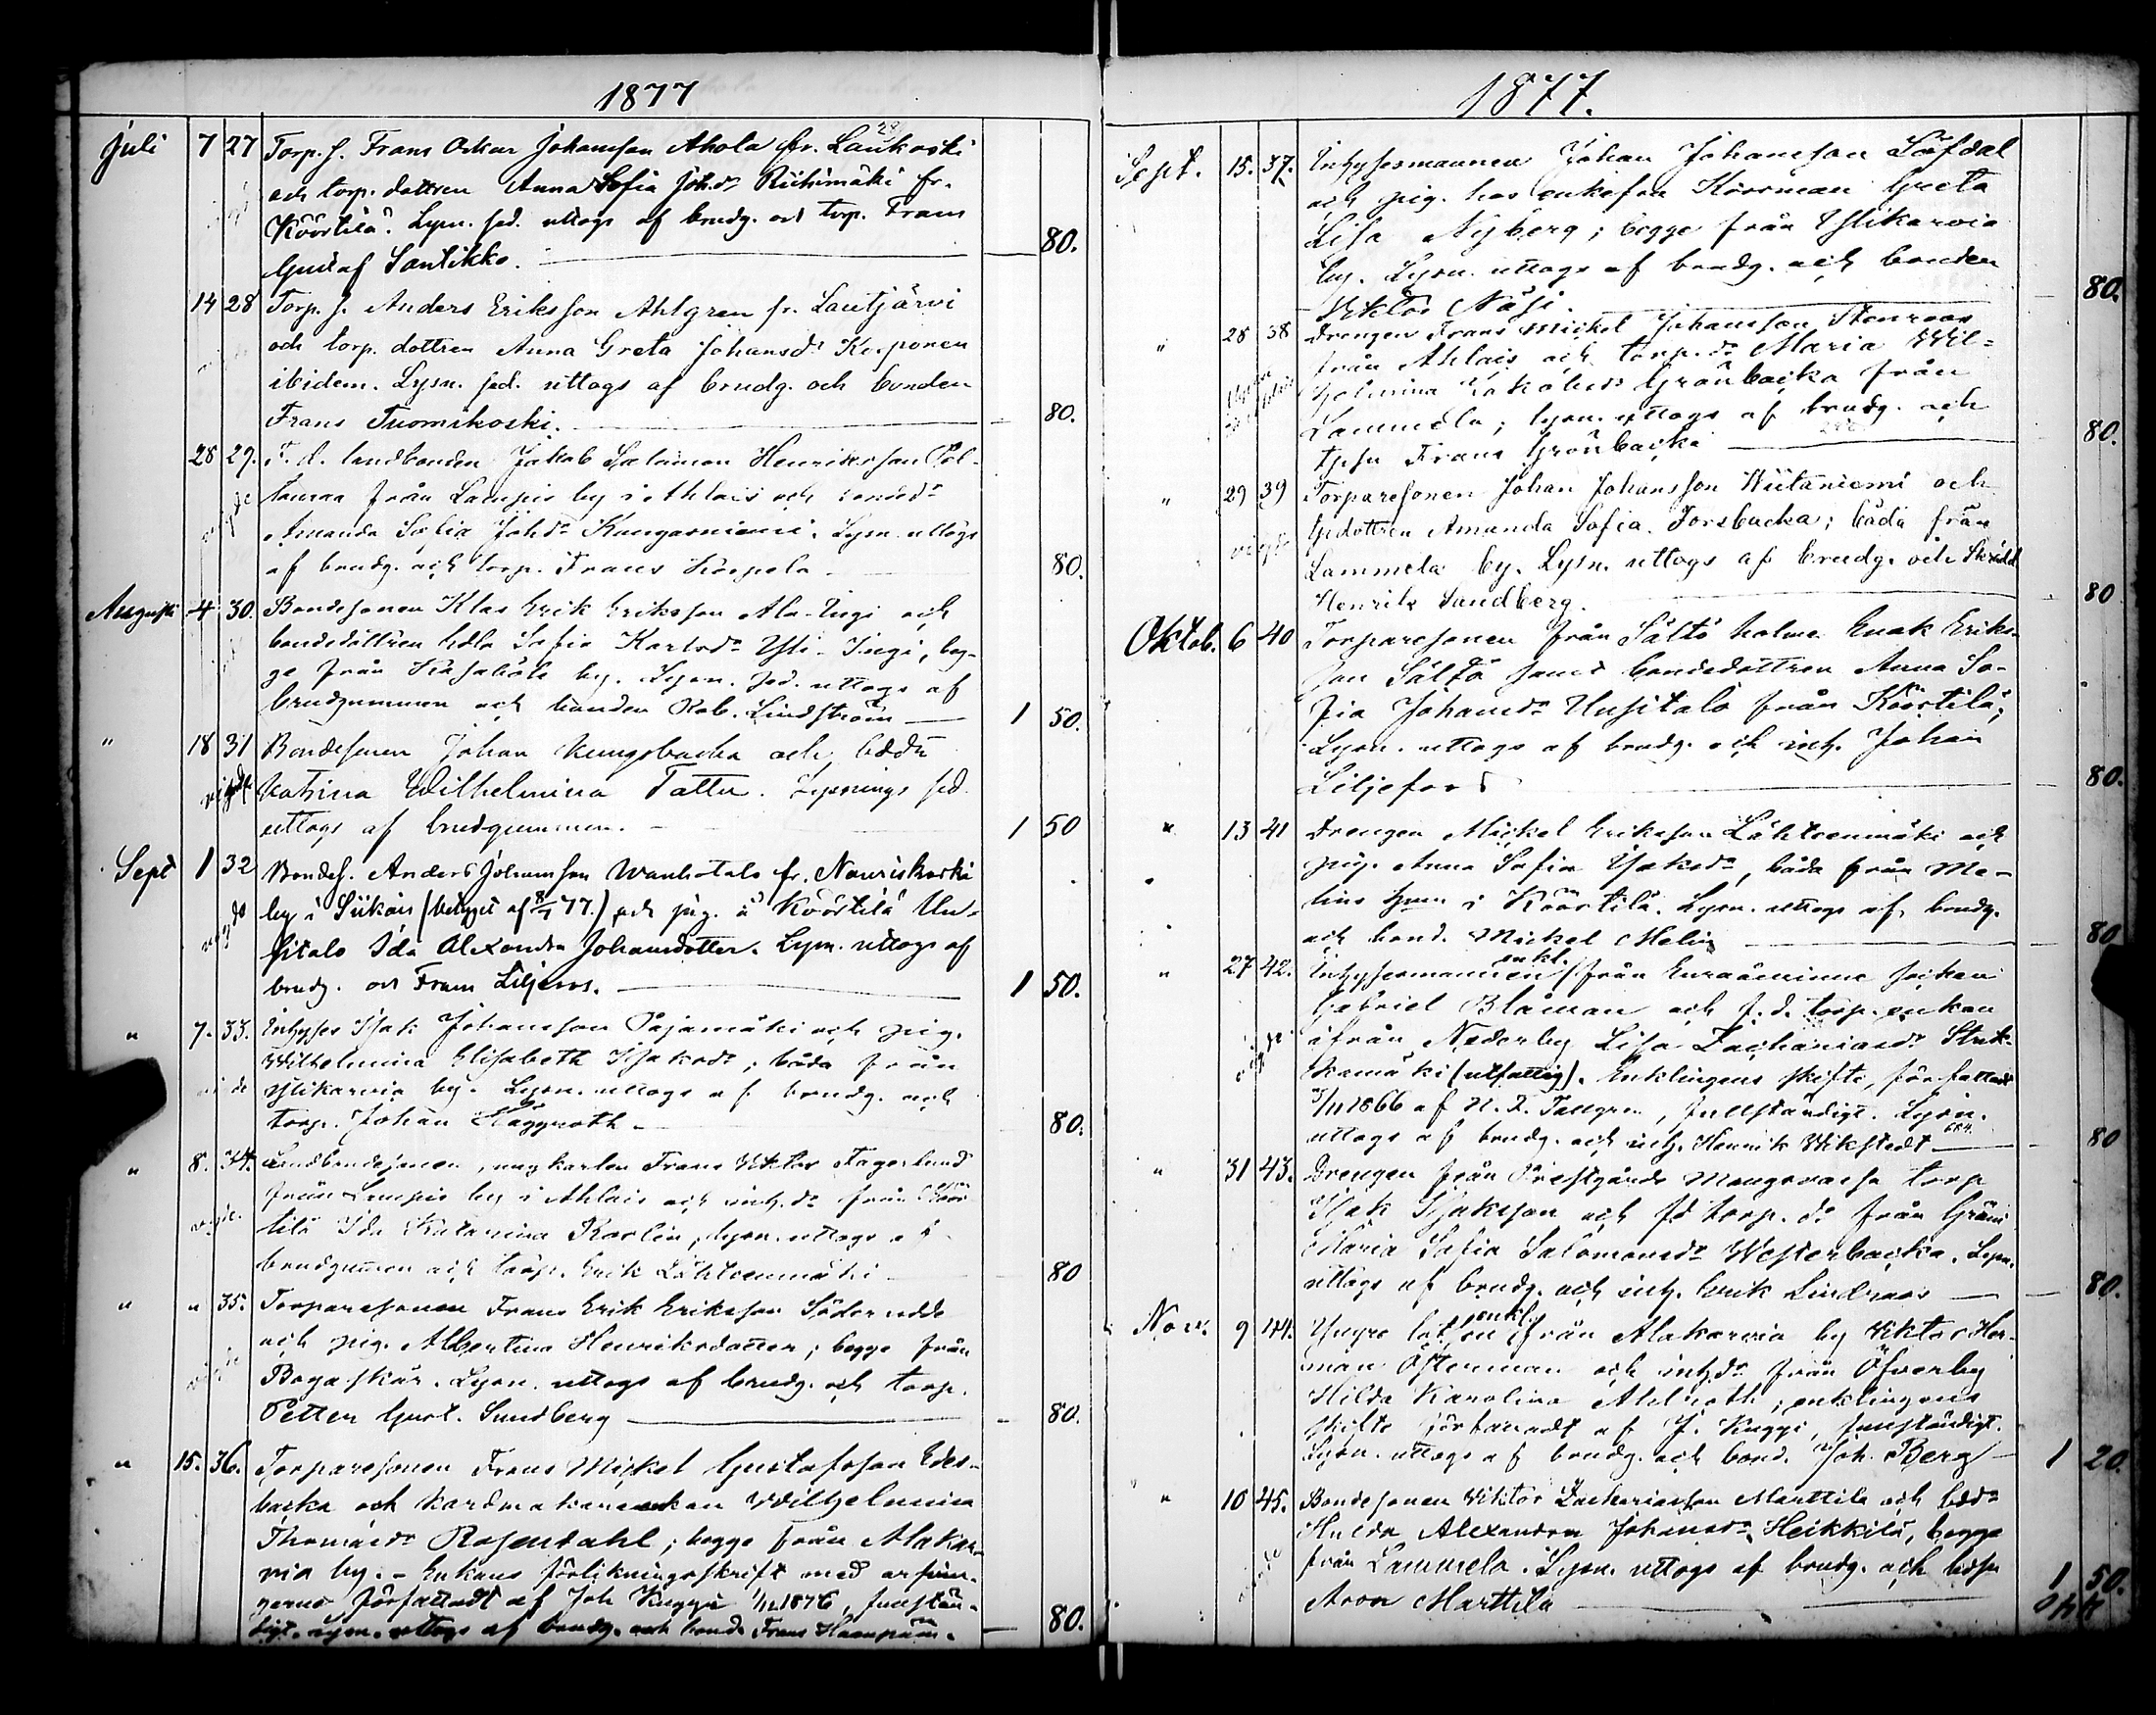 1877
Juli 7 27 Torp. s. Frans Oskar Johansson Ahola fr. Laukoski
och torp. dottren Anna Sofia Joh.dr Riihimäki fr.
Köörtilä. Lysn. sed. uttogs af brudg. och torp. Frans
Gustaf Santikko. — 80.
14 28 Torp. s. Anders Eriksson Ahlgren fr. Lautjärvi
och torp. dottren Anna Greta Johansdr Korponen
ibidem. Lysn. sed. uttogs af brudg. och bonden
Frans Tuomikoski. — 80.
28 29. F. d. landbonden Jakob Salomon Henriksson
från Lampis by i Ahlais och
Amanda Sofia Joh.dr Kungasniemi. Lysn. uttogs
af brudg. och torp. Frans Korpela. 80.
Augusti 4 30. Bondesonen Klas Erik Eriksson Ala-Ingi och
bondedottren Edla Sofia Karlsdr Yli-Ingi, beg-
ge från Kasaböle by. Lysn. sed. uttogs af
brudgummen och bonden Rob. Lindström — 1 50.
" 18 31 Bondesonen Johan Kungsbacka och bddr
vigde Katrina Wilhelmina Tattu. Lysnings sed.
uttogs af brudgummen. — 1 50
Sept 1 32 Bondes. Anders Johansson Wanhatalo fr. Nauriskoski
by i Siikais (betyget af 8/7 77.) och pig. å Köörtilä Uu-
vigde sitalo Ida Alexandra Johansdotter. Lysn. uttogs af
brudg. och Frans Liljeros. — 1 50.
" 7. 33. Inhyses Isak Johansson Pajamäki och pig.
Wilhelmina Elisabeth Isaksdr; båda från
Ylikarvia by. Lysn. uttogs af brudg. och
torp. Johan Häggroth — 80.
" 8. 34. Landbondesonen, ungkarlen Frans Viktor Fagerlund
från Lampis by i Ahlais och inh. dr från Köör-
vigde tilä Ida Katarina Karlin, lysn. uttogs af
brudgummen och torp. Erik Lähteenmäki 80
" " 35. Torparesonen Frans Erik Eriksson Söderudde
och pig. Albertina Henriksdotter; begge från
vigde Bogaskär. Lysn. uttogs af brudg. och torp.
Petter Gust. Sundberg — 80.
" 15. 36. Torparesonen Frans Mickel Gustafsson Edes-
backa och enkan Wilhelmina
Thomasdr Rosendahl; begge från Alakar-
via by. – Enkans förlikningsskrift med arfvin-
garne författadt af Joh Kuggi 1/11 1876, fullstän-
digt. Lysn. uttogs af brudg. och bond. Frans — 80.
1877.
Sept. 15. 37. Inhysesmannen Johan Johansson Löfdal
och pig. hos enkefru Korsman Greta
Lisa Nyberg; begge från Ylikarvia
by. Lysn. uttogs af brudg. och bonden
Viktor Näsi. — 80.
" 28 38 Drengen Frans Mickel Johansson Stenroos
från Ahlais och torp. dr Maria Wil-
helmina Jakobsdr Grönbacka från
Lammela; lysn. uttogs af brudg. och
Frans Grönbacka — 80.
" 29 39 Torparesonen Johan Johansson Wiitaniemi och
vigde dottren Amanda Sofia Forsbacka; båda från
Lammela by. Lysn. uttogs af brudg. och Skrädd.
Henrik Sandberg. — 80
Oktob. 6 40 Torparesonen från Sältö holme Enok Eriks-
son Sältö samt bondedottren Anna So-
fia Johansdr Uusitalo från Köörtilä;
Lysn. uttogs af brudg. och inh. Johan
Liljefors — 80.
" 13 41 Drengen Mickel Eriksson Lähteenmäki och
pig. Anna Sofia Isaksdr, båda från Me-
lins hmn i Köörtilä. Lysn. uttogs af brudg.
och bond. Mickel Melin — 80
" 27 42. Inhysesmannen enkl. från Euraåminne socken
Gabriel Blåman och f. d. torp. enkan
vigde ifrån Nederby Lisa Zachariasdr
(utfattig). Enklingens skifte, författadt
3/11 1866 af N. J. Tallgren, fullständigt. Lysn.
uttogs af brudg. och inh. Henrik Wikstedt — 80
" 31 43. Drengen från Prestgårds torp
Isak Isaksson och fd torp. dr från
Maria Sofia Salomonsdr Westerbacka. Lysn.
uttogs af brudg. och inh. Erik Lindroos — 80.
Nov. 9 44. Yngre enkl. från Alakarvia by Viktor Her-
man Österman och inh.dr från Öfverby
Hilda Karolina Ahlroth; enklingens
skifte författadt af J. Kuggi, fullständigt.
Lysn. uttogs af brudg. och bond. Joh. Berg — 1 20.
" 10 45. Bondesonen Viktor Zachariasson Marttila och bddr
Hulda Alexandra Johansdr Heikkilä, begge
från Lammela. Lysn. uttogs af brudg. och bdsn
Aron Marttila — 1 50.